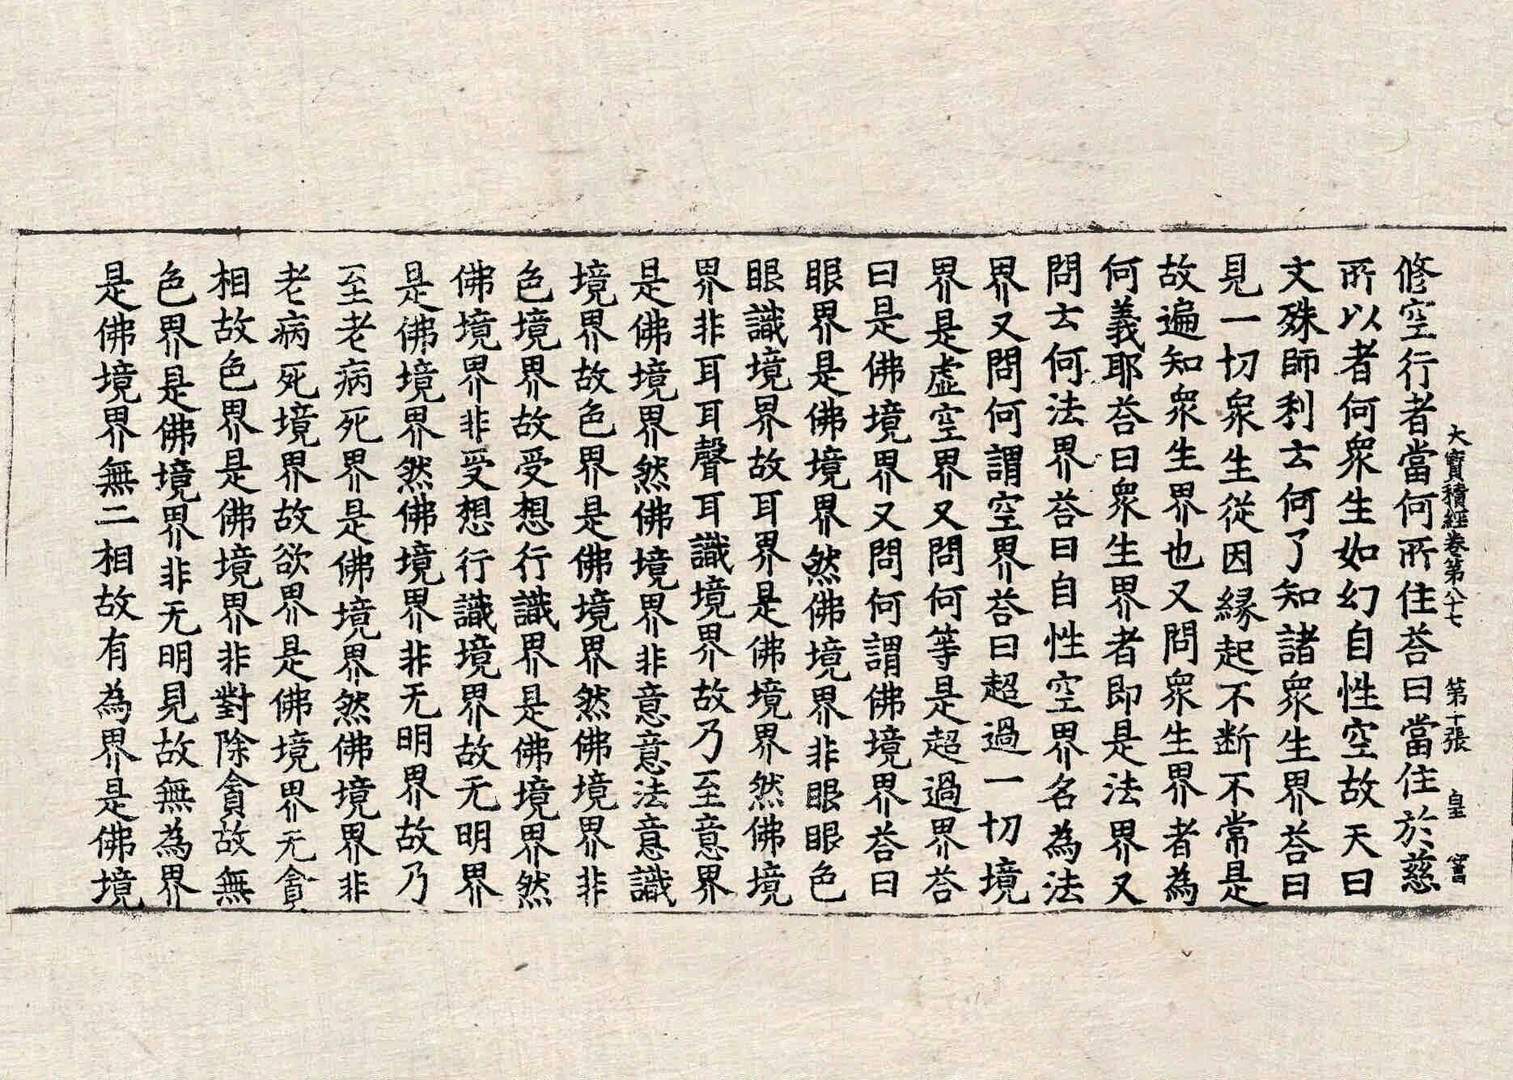 大寶積經卷第八十七 第十張 皇
修空行者當何所住荅曰當住於慈
所以者何衆生如幻自性空故天曰
文殊師利云何了知諸衆生界荅曰
見一切衆生從因緣起不断不常是
故遍知衆生界也又問衆生界者為
何義耶荅曰衆生界者即是法界又
問云何法界荅曰自性空界名為法
界又問何謂空界荅曰超過一切境
界是虛空界又問何等是超過界荅
曰是佛境界又問何謂佛境界荅曰
眼界是佛境界然佛境界非眼眼色
眼識境界故耳界是佛境界然佛境
界非耳耳聲耳識境界故乃至意界
是佛境界然佛境界非意意法意識
境界故色界是佛境界然佛境界非
色境界故受想行識界是佛境界然
佛境界非受想行識境界故无明界
是佛境界然佛境界非无明界故乃
至老病死界是佛境界然佛境界非
老病死境界故欲界是佛境界无貪
相故色界是佛境界非對除貪故無
色界是佛境界非无明見故無為界
是佛境界無二相故有為界是佛境